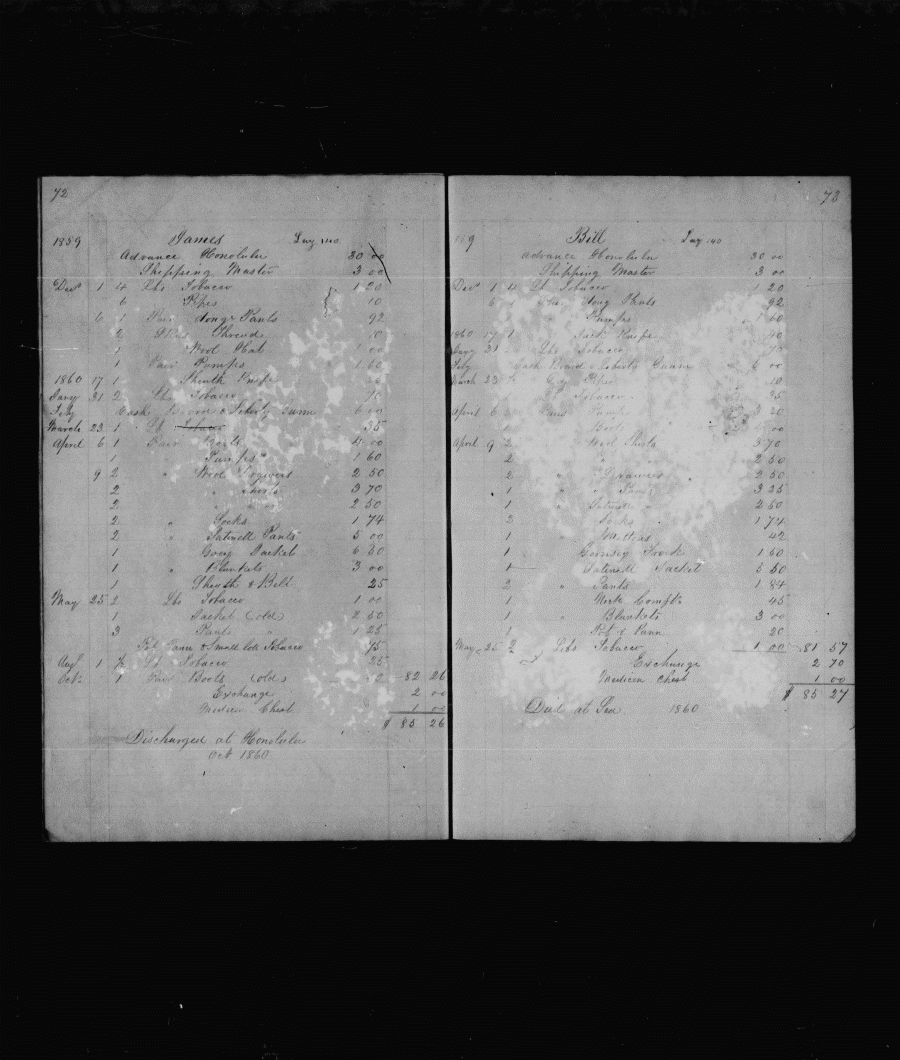 72
1859 James Lay 140
Advance Honolulu 30 00
Shipping Master 3 00
Decr 1 4 Lbs Tobacco 1 20
6 Pipes 10
6 1 Pair Pants 92
2 Thread 10
1 Wool Hat 1 00
1 Pair Pumps 1 60
1860 17 1 Sheath Knife
Jany 31 2 Lbs Tobacco
Feby Cash Liberty Guam 6 00
March 23 1 Lb Tobacco 35
April 6 1 Pair Boots 4 00
1 " Pumps 1 60
9 2 " Wool Drawers 2 50
2 " Shirts 3 70
2 " 2 50
2 " Socks 1 74
2 " Satinett Pants 5 00
1 Jacket
1 " Blankets 3 00
1 Sheath & Belt 25
May 25 2 Lbs Tobacco 1 00
1 Jacket (old) 2 50
3 Pants " 1 25
Pot Pann & Small lot Tobacco 75
Augt 1 ½ Lb Tobacco 25
Oct 1 Pair Boots (old) 82 26
Exchange 2 00
Medicin Chest 1 00
$ 85 26
Discharged at Honolulu
Oct 1860
73
Bill Lay 140
Advance Honolulu 30 00
Shipping Master 3 00
Decr 1 4 Lb Tobacco 1 20
6 1 Pants 92
Pumps 1 60
1860 17 1 Jack Knife
Jany 31 Lbs Tobacco
Feby Cash Board & Liberty Guam 6 00
March 23 Pipes 10
Tobacco 35
April 6 Pair Pumps
Boots
April 9 2 " Wool Shirts 3 70
2 " 2 50
2 " Drawers " 2 50
1 " " 3 25
1 " Satinett " 2 50
2 " Socks 1 74
1 " Mittens 42
1 Guernsey Frock 1 60
1 Satinett Jacket 5 50
2 " Pants 1 84
1 Neck Compfts 45
1 " Blankets 3 00
1 Pot & Pann 20
May 25 2 Lbs Tobacco 1 00 81 57
Exchange 2 70
Medicin Chest 1 00
$ 85 27
Died at Sea 1860